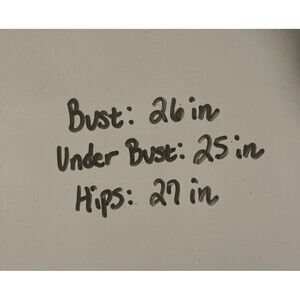 Bust: 26 in
Under Bust: 25 in
Hips: 27 in